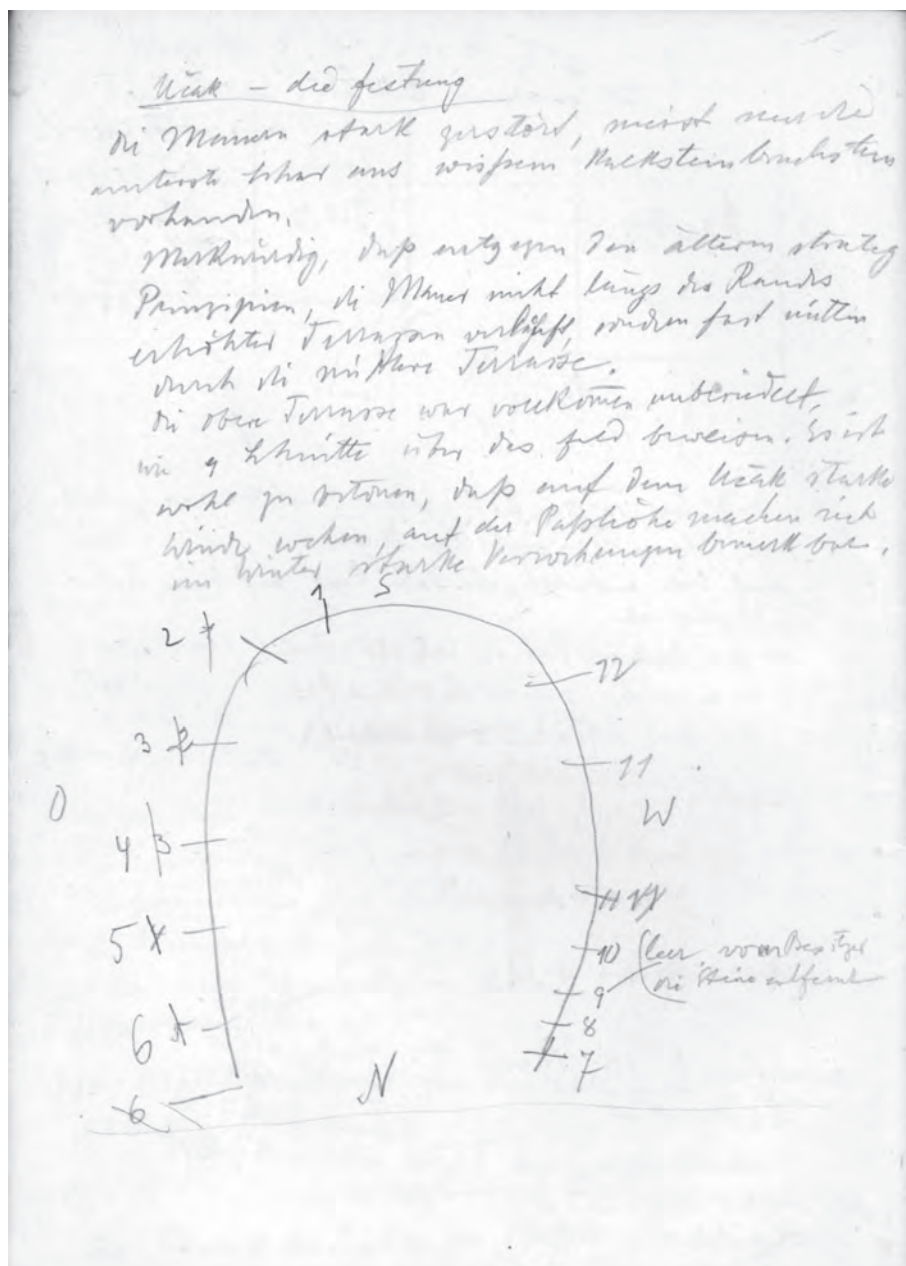 Učak – die festung
die Mauern stark zerstört, meist nur die
unterste Schar aus weißem Kalksteinbruchstein
vorhanden.
Merkwürdig, daß entgegen den älteren strateg
Prinzipien, die Mauer nicht längs des Randes
erhöhter Terrassen verläuft, sondern fast mitten
durch die mittlere Terrasse.
die obere Terrasse war vollkommen unbesiedelt,
wie 9 Schnitte über das feld beweisen. Es ist
wohl zu betonen, daß auf dem Učak starke
Winde wehen, auf der Paßhöhe machen sich
im Winter starke Verwehungen bemerkbar.
1 S
2
12
3
11
O
W
4 3
11
5
10 (leer, vom Besitzer
die Steine entfernt
9
8
6
7
N
6